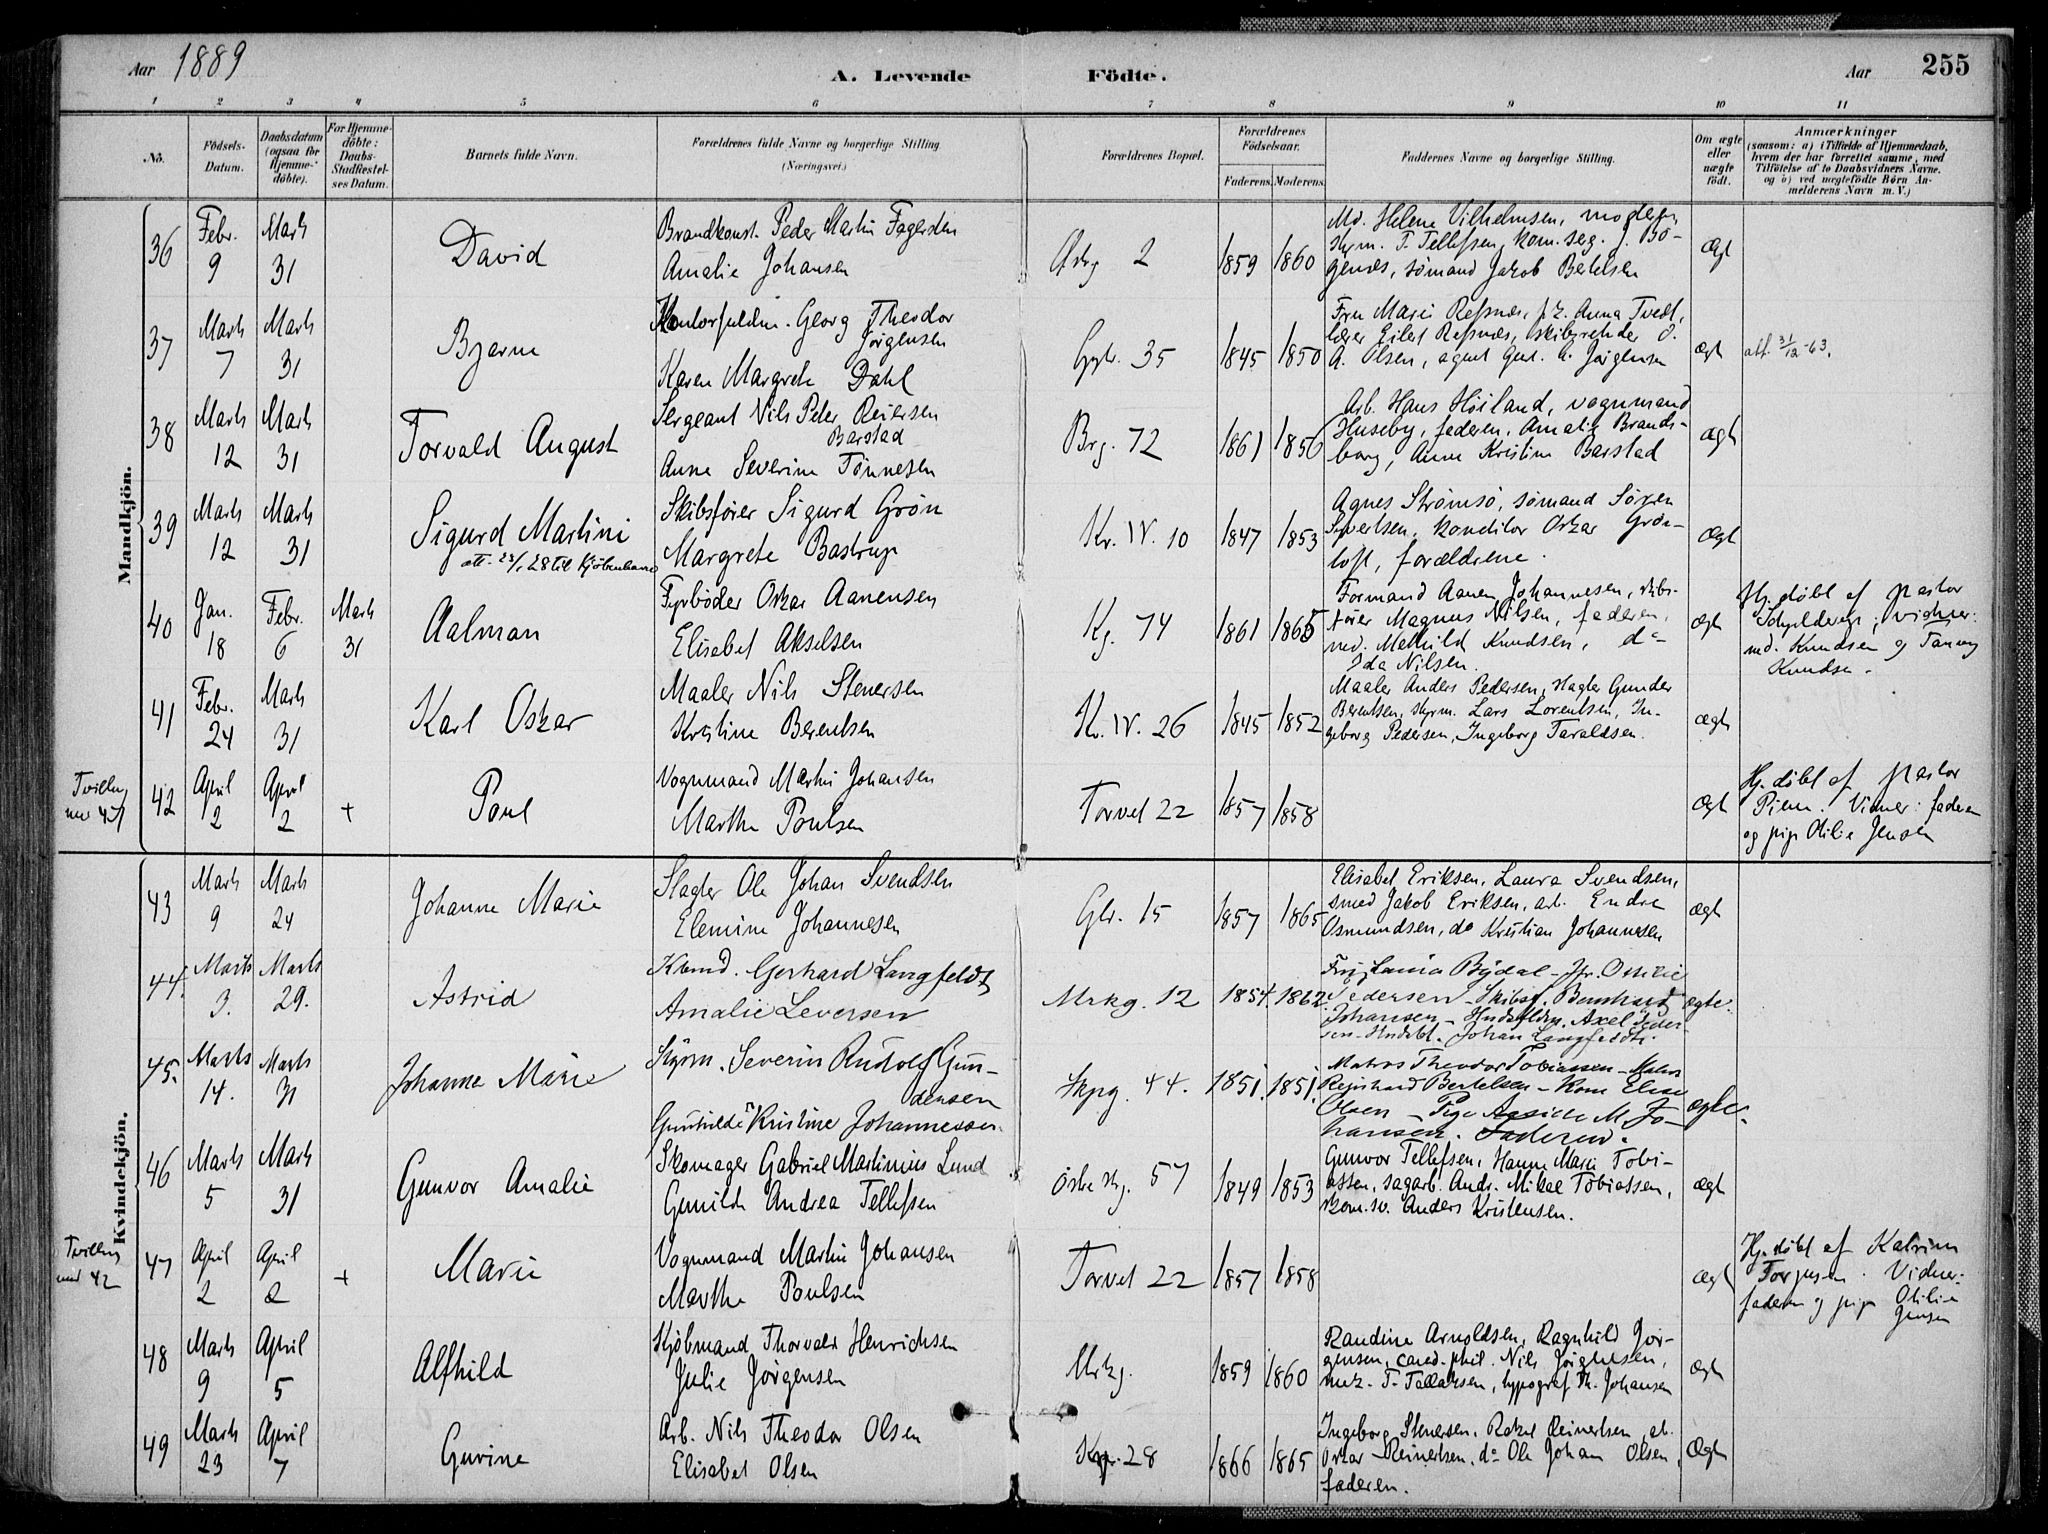 Aar 1889
A. Levende Födte.
Aar 255
1 2 3 4 5 6 7 8 9 10 11
Nö.
Födsels-Datum.
Daabsdatum (ogsaa for Hjemme-döbte).
For Hjemme-döbte: Daabs-Stadfæstel-ses Datum.
Barnets fulde Navn.
Forældrenes fulde Navne og borgerlige Stilling (Næringsvei.)
Forældrenes Bopæl.
Forældrenes Födselsaar.
Faderens. Moderens.
Faddernes Navne og borgerlige Stilling.
Om ægte eller uægte födt.
Anmærkninger
(saasom: a) i Tilfælde af Hjemmedaab, hvem der har forrettet samme, med Tilföielse af to Daabsvidners Navne. og b) ved uægtefödte Börn An-melderens Navn m. V.)
Mandkjön.
36 Febr. 9 Marts 31
David
Brandkonst. Peder Martin Fagersten
Amalie Johansen
2 1859 1860
Md. Helene Vilhelmsen, moderen,
Styrm. T. Tellefsen,
sømand Jakob Bertelsen
Ægt
37 Marts 7 Marts 31
Bjarne
Georg Theodor
Jørgensen
Karen Margrete Dahl
35 1845 1850
Fru Marie Refsnæs, Anna Tvedt,
Eilert Refsnæs, skibsreder O.
A. Olsen, agent Jørgensen
ægt
att. 31/12-63.
38 Marts 12 Marts 31
Torvald August
Sergeant Nils Peder Reiersen
Barstad
Anne Severine Tønnesen
Brg. 72 1861 1856
Arb. Hans Høiland, vognmand
Huseby, faderen, Amalie Brands-
borg, Anne Kristine Barstad
ægt
39 Marts 12 Marts 31
Sigurd Martini
att. 28 til Kjöbenhavn
Skibsfører Sigurd Grön
Margrete Bastrup
Kr. IV. 10 1847 1853
Agnes Strømsö, sømand Sören
Syvertsen, konditor Oskar Grön-
toft, forældrene.
Ægt
40 Jan. 18 Febr. 6 Marts 31
Aalman
Fyrbøder Oskar Aanensen
Elisabet Akselsen
Kg. 74 1861 1865
Formand Aanen Johannesen, skibs-
fører Magnus Nilsen, faderen,
md. Methild Knudsen, do
Ida Nilsen.
ægt
Hj. døbt af pastor
vidner:
md. Knudsen og Fanny
Knudse.
41 Febr. 24 Marts 31
Karl Oskar
Maaler Nils Stenersen
Kristine Berentsen
Kr. IV. 26 1845 1852
Maaler Anders Pedersen, slagter Gunder
Berentsen, styrm. Lars Lorentsen, In-
geborg Pedersen, Ingeborg Taraldsen.
ægt
Tvilling
42 April 2 April 2 +
Poul
Vognmand Martin Johansen
Marthe Poulsen
Torvet 22 1857 1858
ægt
Hj. døbt af pastor
Vidner: faderen
og pige Otilie Jensen
Kvindekjön.
43 Marts 9 Marts 24
Johanne Marie
Slagter Ole Johan Svendsen
Elemine Johannesen
Glr. 15 1857 1865
Elisabet Eriksen, Laura Svendsen,
smed Jakob Eriksen, arb. Endre
Osmundsen, do Kristian Johannesen
ægt
44. Marts 3. Marts 29.
Astrid
Gerhard Langfeldt
Amalie Leversen
Mrkg. 12 1854. 1862
Pedersen - Skibsf. Bernhard
Johansen - Axel Peder-
sen - Johan Langfeldt.
ægte.
45. Marts 14. Marts 31
Johanne Marie
Styrm. Severin Rudolf Gun-
dersen
Gunhilde Kristine Johannessen
Skpg. 44. 1851. 1851.
Matros Theodor Tobiassen - Matros
Reinhard Bertelsen - Kone Elise
Olsen - Pige M. Jo-
hansen. Faderen.
ægte.
46 Marts 5 Marts 31
Gunvor Amalie
Skomager Gabriel Martinius Lund
Gunilde Andrea Tellefsen
Østre Stg. 57 1849 1853
Gunvor Tellefsen, Hanne Marie Tobi-
assen, sagarb. Andr. Mikal Tobiassen,
Anders Kristensen.
ægt
Tvilling
med 42
47 April 2 April 2 +
Marie
Vognmand Martin Johansen
Marthe Poulsen
Torvet 22 1857 1858
ægt
Hj. døbt af Katrine
Torjusen. Vidner:
faderen og pige Otilie
Jensen
48 Marts 9 April 5
Alfhild
Kjöbmand Thorvald Henrichsen
Julie Jørgensen
Mrkg. 1859 1860
Randine Arnoldsen, Ragnhild Jør-
gensen, cand. phil. Nils Jörgensen,
typograf Th. Johansen
ægt
49 Marts 23 April 7
Guvine
Arb. Nils Theodor Olsen
Elisabet Olsen
28 1866 1865
Ingeborg Stenersen, Rakel Reinertsen, arb.
Oskar Reinertsen, do Ole Johan Olsen,
faderen.
Ægt